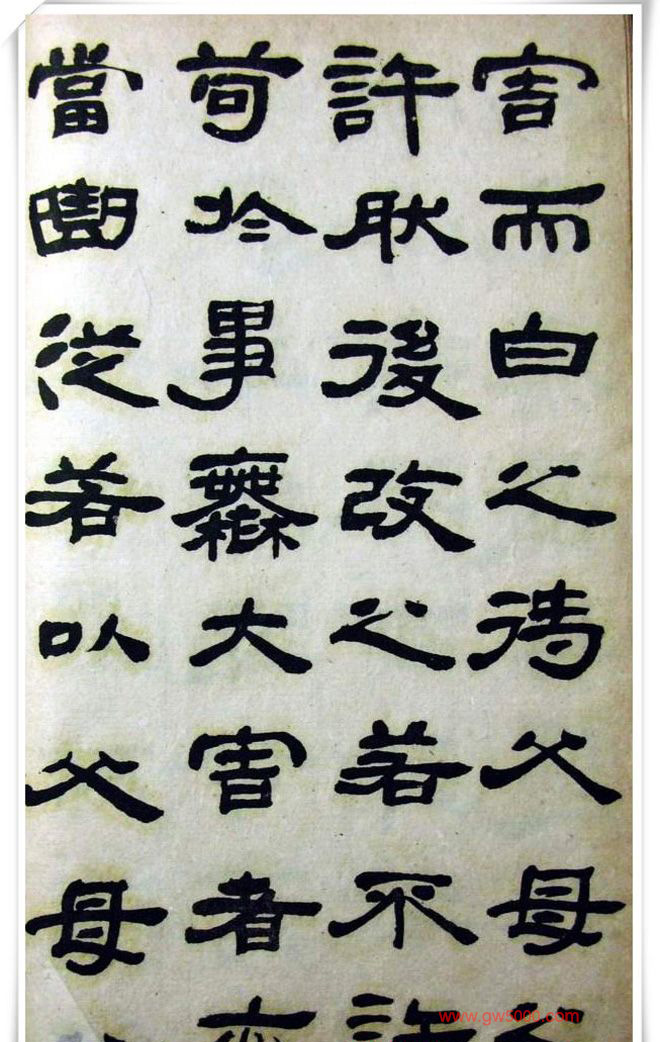 害而白之待父母之
許肰後改之若不許
苟於事無大害者亦
當曲從若以父母
www.gw5000.com